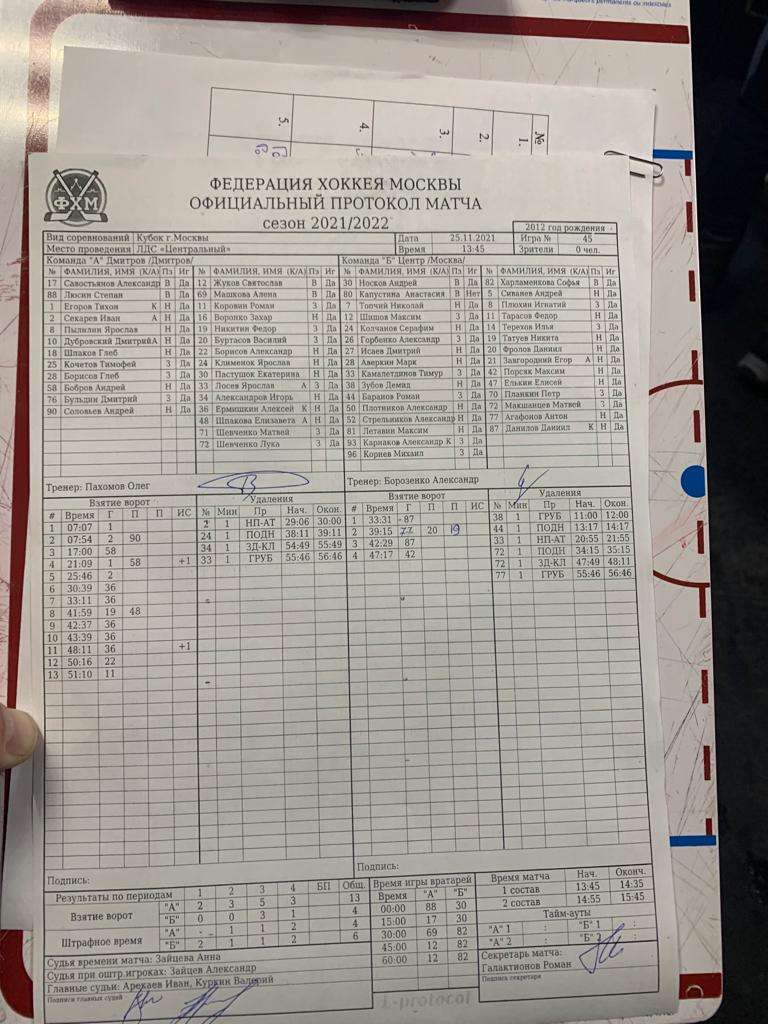 5. 4. 3. 2. 1. №
ФХМ
ФЕДЕРАЦИЯ ХОККЕЯ МОСКВЫ
ОФИЦИАЛЬНЫЙ ПРОТОКОЛ МАТЧА
сезон 2021/2022
2012 год рождения
Вид соревнований Кубок г.Москвы Дата 25.11.2021 Игра № 45
Место проведения ЛДС «Центральный» Время 13:45 Зрители 0 чел.
Команда "А" Дмитров /Дмитров/ Команда "Б" Центр /Москва/
№ ФАМИЛИЯ, ИМЯ (К/А) Пз Иг № ФАМИЛИЯ, ИМЯ (К/А) Пз Иг № ФАМИЛИЯ, ИМЯ (К/А) Пз Иг № ФАМИЛИЯ, ИМЯ (К/А) Пз Иг
17 Савостьянов Александр В Да 12 Жуков Святослав В Да 30 Носков Андрей В Да 82 Харламенкова Софья В Да
88 Люсин Степан В Да 69 Машкова Алена В Да 80 Капустина Анастасия В Нет 5 Сиванев Андрей Н Да
1 Егоров Тихон К Н Да 11 Коровин Роман З Да 7 Топчий Николай Н Да 8 Плюхин Игнатий З Да
2 Секарев Иван А Н Да 16 Воронко Захар Н Да 12 Шишов Максим З Да 11 Тарасов Федор Н Да
8 Пылилин Ярослав Н Да 19 Никитин Федор З Да 24 Колчанов Серафим Н Да 14 Терехов Илья З Да
10 Дубровский Дмитрий А Н Да 20 Буртасов Василий З Да 26 Горбенко Александр З Да 19 Татуев Никита Н Да
18 Шпаков Глеб Н Да 22 Борисов Александр Н Да 27 Исаев Дмитрий Н Да 20 Фролов Даниил Н Да
25 Кочетов Тимофей З Да 24 Клименок Ярослав Н Да 28 Аверкин Марк Н Да 21 Завгородний Егор А Н Да
28 Борисов Глеб З Да 30 Пастущук Екатерина Н Да 33 Камалетдинов Тимур З Да 42 Порсяк Максим Н Да
58 Бобров Андрей Н Да 33 Лосев Ярослав А З Да 38 Зубов Демид Н Да 47 Елькин Елисей Н Да
76 Бульдин Дмитрий З Да 34 Александров Игорь Н Да 44 Баранов Роман З Да 70 Планкин Петр З Да
90 Соловьев Андрей Н Да 36 Ермишкин Алексей К Н Да 50 Плотников Александр Н Да 72 Макшанцев Матвей З Да
48 Шпакова Елизавета А Н Да 52 Стрельников Александр Н Да 77 Агафонов Антон Н Да
71 Шевченко Матвей З Да 81 Летавин Максим Н Да 87 Данилов Даниил К Н Да
72 Шевченко Лука З Да 93 Карнаков Александр К З Да
96 Корнев Михаил З Да
Тренер: Пахомов Олег Тренер: Борозенко Александр
Взятие ворот Удаления Взятие ворот Удаления
# Время Г П П ИС № Мин Пр Нач. Окон. # Время Г П П ИС № Мин Пр Нач. Окон.
1 07:07 1 2 1 НП-АТ 29:06 30:00 1 33:31 87 38 1 ГРУБ 11:00 12:00
2 07:54 2 90 24 1 ПОДН 38:11 39:11 2 39:15 77 20 19 44 1 ПОДН 13:17 14:17
3 17:00 58 34 1 ЗД-КЛ 54:49 55:49 3 42:29 87 33 1 НП-АТ 20:55 21:55
4 21:09 1 58 +1 33 1 ГРУБ 55:46 56:46 4 47:17 42 72 1 ПОДН 34:15 35:15
5 25:46 2 72 1 ЗД-КЛ 47:49 48:11
6 30:39 36 77 1 ГРУБ 55:46 56:46
7 33:11 36
8 41:59 19 48
9 42:37 36
10 43:39 36
11 48:11 36 +1
12 50:16 22
13 51:10 11
Подпись: Подпись:
Результаты по периодам 1 2 3 4 БП Общ.
Взятие ворот "А" 2 3 5 3 13
"Б" 0 0 3 1 4
Штрафное время "А" - 1 1 2 4
"Б" 2 1 1 2 6
Судья времени матча: Зайцева Анна
Судья при оштр.игроках: Зайцев Александр
Главные судьи: Арекаев Иван, Куркин Валерий
Подписи главных судей
Время игры вратарей
Время "А" "Б"
00:00 88 30
15:00 17 30
30:00 69 82
45:00 12 82
60:00 12 82
Время матча Нач. Оконч.
1 состав 13:45 14:35
2 состав 14:55 15:45
Тайм-ауты
"А" 1 : "Б" 1 :
"А" 2 : "Б" 2 :
Секретарь матча:
Галактионов Роман
Подпись секретаря
i-protocol